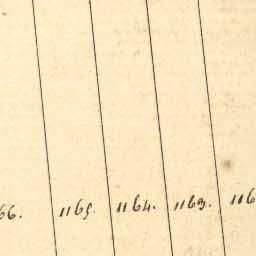 66. 1165. 1164. 1163. 116